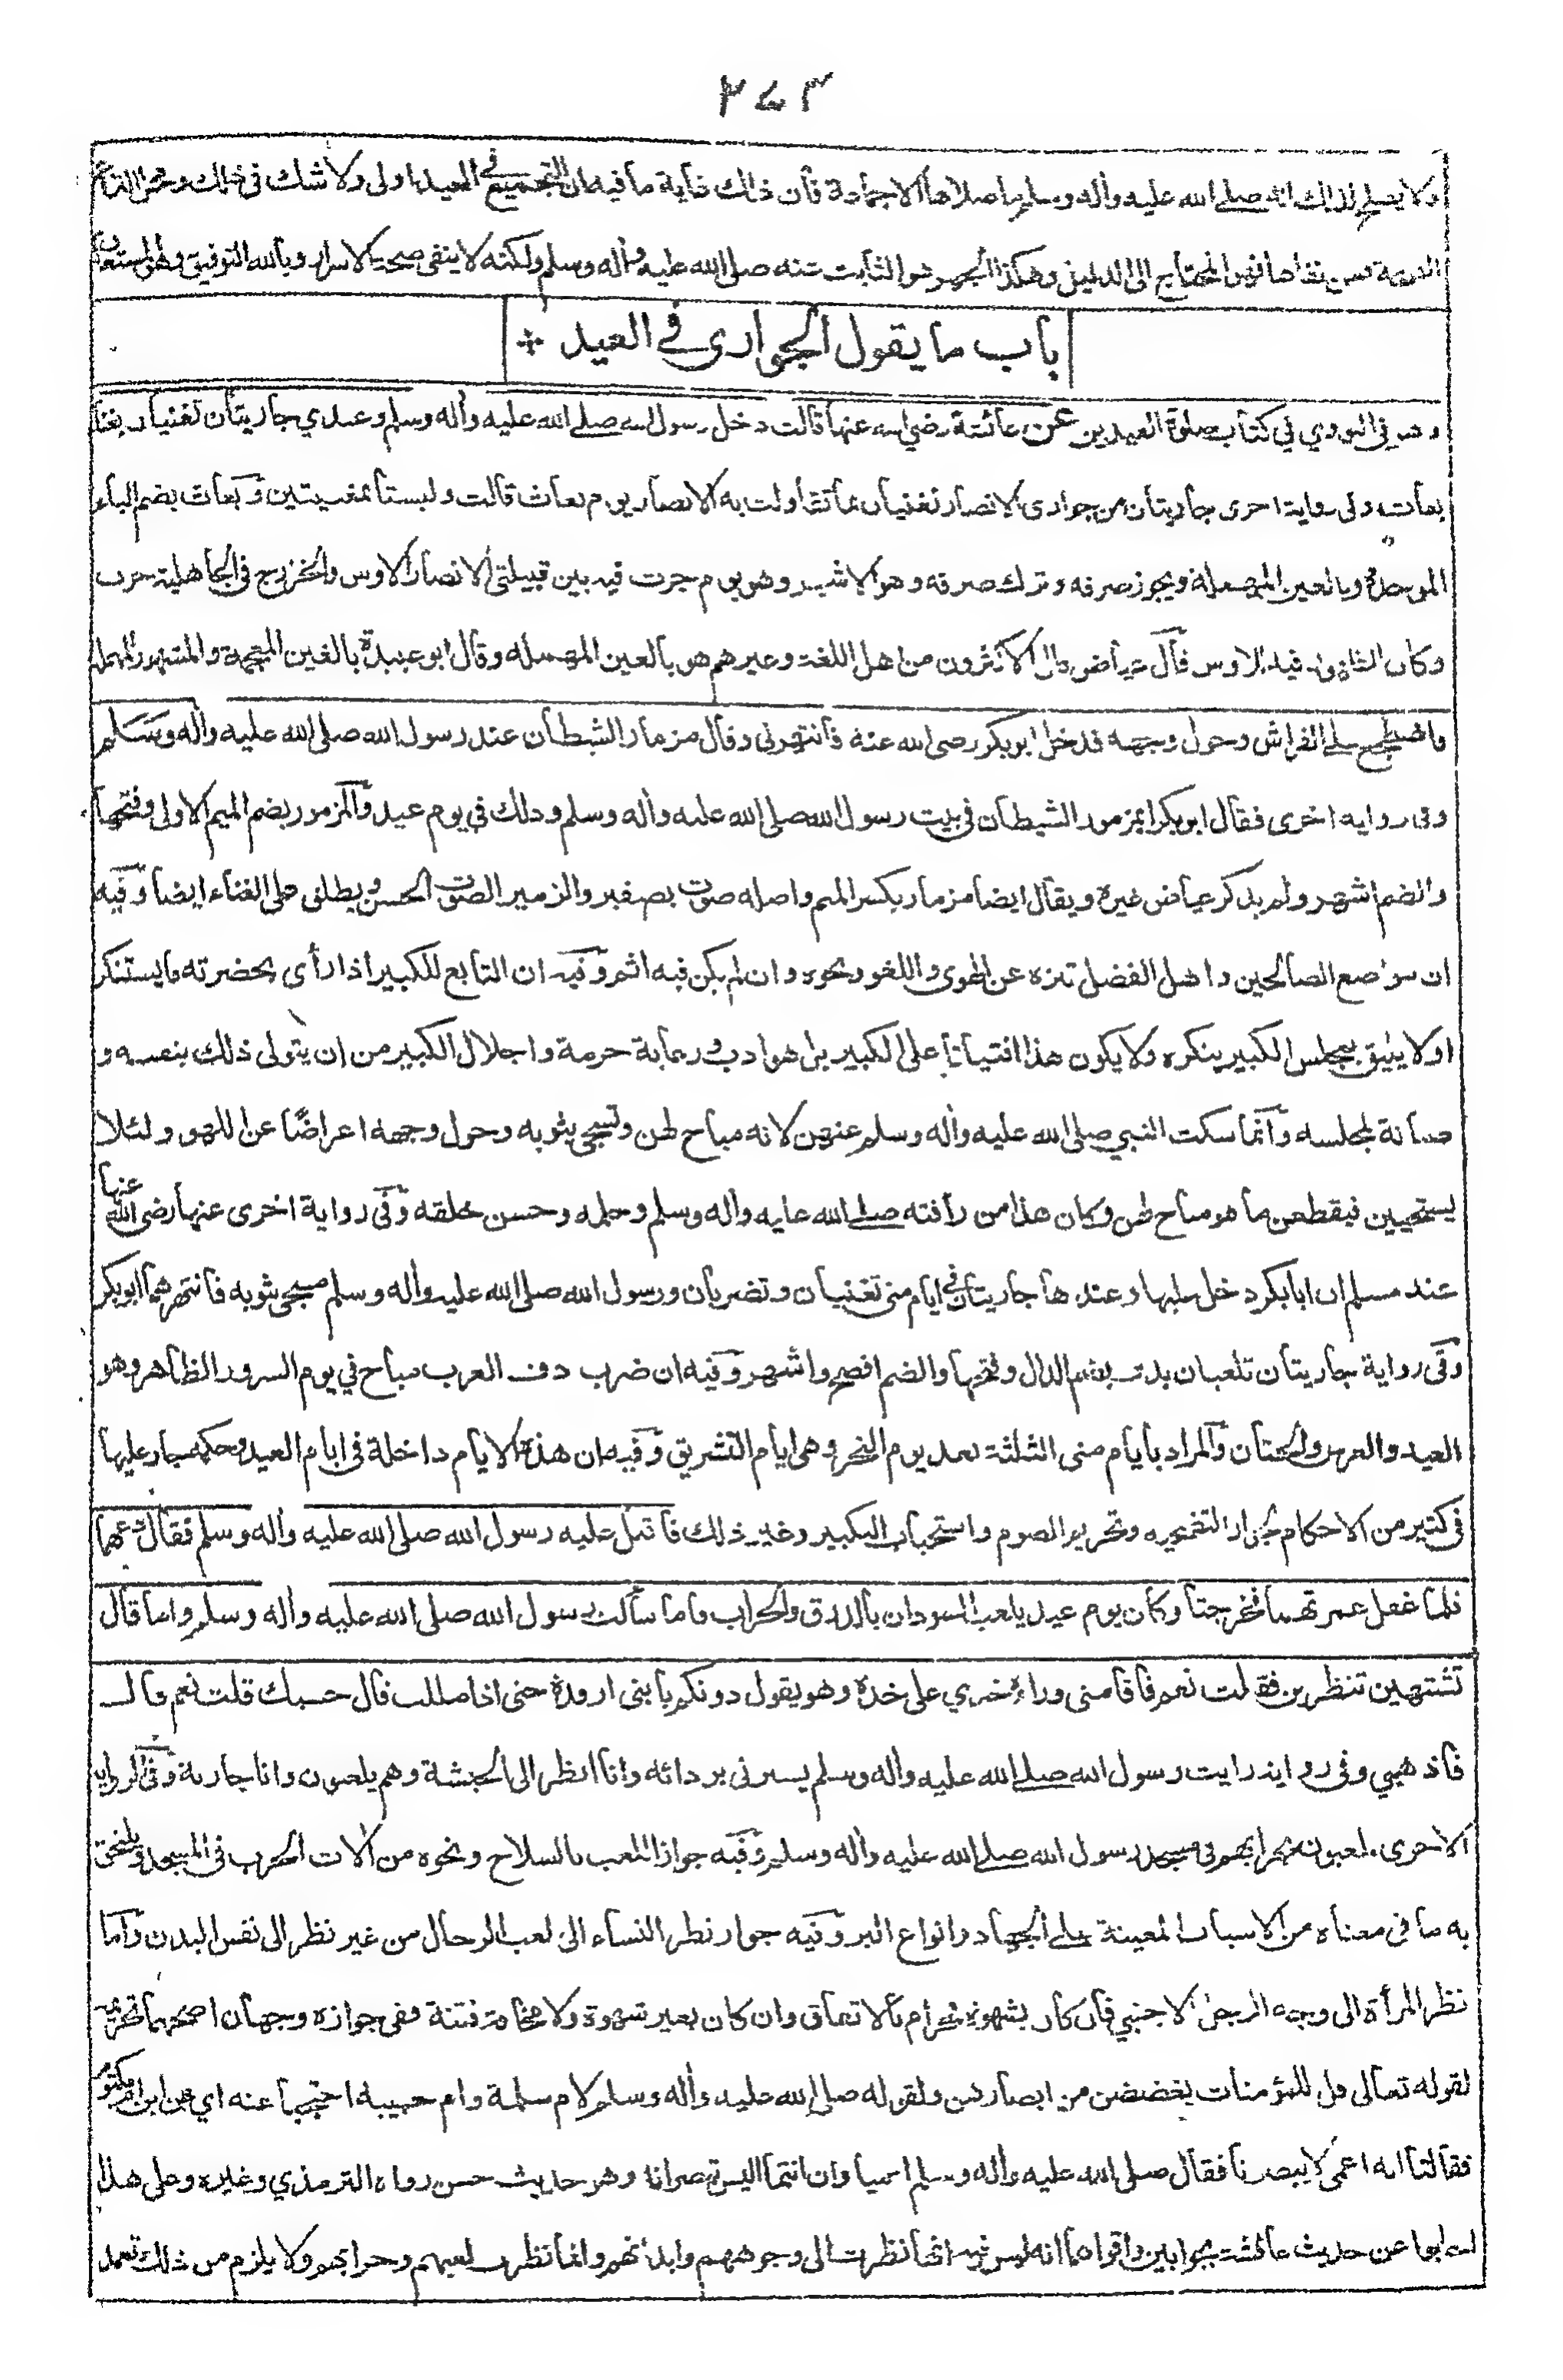 ٢٧٣
ولا يصلح لذلك انه صلى الله عليه وأله وسلم ما صلاها الا جماعة فأن ذلك غاية ما فيه ان التجميع في العيد اولى ولا شك في ذلك وحمل
فمن نفاها فهو المحتاج الى الدليل وهكذا الجهر هو الثابت عنه صلى الله عليه وأله وسلم ولكنه لا ينفى صحة الاسرار وبالله التوفيق وهو المستعان
باب ما يقول الجواري في العيد
وهو في النووي في كتاب صلوة العيدين عن عائشة رضي الله عنها قالت دخل رسول الله صلى الله عليه وأله وسلم وعندي جاريتان تغنيان بغناء
بعاث وفى رواية اخرى جاريتان من جوارى الانصار تغنيان بما تقاولت به الانصار يوم بعاث قالت وليستا بمغنيتين وبعاث بضم الباء
الموحدة وبالعين المهملة ويجوز صرفه وترك صرفه وهو الاشهر وهو يوم جرت فيه بين قبيلتى الانصار الاوس والخزرج في الجاهلية حرب
وكان الظهور فيه للاوس قال عياض قال الاكثرون من اهل اللغة وغيرهم هو بالعين المهملة وقال ابو عبيدة بالغين المعجمة والمشهور المهملة
فاضطجع على الفراش وحول وجهه فدخل ابو بكر رضى الله عنه فانتهرنى وقال مزمار الشيطان عند رسول الله صلى الله عليه وأله وسلم
وفى رواية اخرى فقال ابو بكر ابمزمور الشيطان في بيت رسول الله صلى الله عليه وأله وسلم وذلك في يوم عيد والمزمور بضم الميم الاولى وفتحها
والضم اشهر ولم يذكر عياض غيره ويقال ايضا مزمار بكسر الميم واصله صوت بصفير والزمير الصوت الحسن ويطلق على الغناء ايضا وفيه
ان مواضع الصالحين واهل الفضل تنزه عن الهوى واللغو ونحوه وان لم يكن فيه اثم وفيه ان التابع للكبير اذا رأى بحضرته ما يستنكر
اولا يليق بمجلس الكبير ينكره ولا يكون هذا افتياتا على الكبير بل هو ادب ورعاية حرمة واجلال الكبير من ان يتولى ذلك بنفسه و
صيانة لمجلسه وانما سكت النبي صلى الله عليه وأله وسلم عنهن لانه مباح لهن وتسجى بثوبه وحول وجهه اعراضًا عن اللهو ولئلا
يستحيين فيقطعن ما هو مباح لهن وكان هذا من رأفته صلى الله عليه وأله وسلم وحلمه وحسن خلقه وفي رواية اخرى عنها رضى الله عنها
عند مسلم ان ابا بكر دخل عليها وعندها جاريتان في ايام منى تغنيان وتضربان ورسول الله صلى الله عليه وأله وسلم مسجى بثوبه فانتهرهما ابو بكر
وفي رواية جاريتان تلعبان بدف بضم الدال وفتحها والضم افصح واشهر وفيه ان ضرب دف العرب مباح في يوم السرور الظاهر وهو
العيد والعرس والختان والمراد بأيام منى الثلثة بعد يوم النحر وهى ايام التشريق وفيه ان هذة الايام داخلة في ايام العيد وحكمه جار عليها
في كثير من الاحكام لجواز التضحية وتحريم الصوم واستحباب التكبير وغير ذلك فأقبل عليه رسول الله صلى الله عليه وأله وسلم فقال دعهما
فلما غفل غمزتهما فخرجتا وكان يوم عيد يلعب السودان بالدرق والحراب فاما سألت رسول الله صلى الله عليه وأله وسلم واما قال
تشتهين تنظرين فقلت نعم فأقامنى وراءه خدي على خده وهو يقول دونكم يا بنى ارفدة حتى اذا مللت قال حسبك قلت نعم قال
فأذهبي وفى رواية رايت رسول الله صلى الله عليه وأله وسلم يسترنى بردائه وانا انظر الى الحبشة وهم يلعبون وانا جارية وفي الرواية
الاخرى يلعبون بحرابهم في مسجد رسول الله صلى الله عليه وأله وسلم وفيه جواز اللعب بالسلاح ونحوه من ألات الحرب في المسجد ويلتحق
به ما في معناه من الاسباب المعينة على الجهاد وانواع البر وفيه جواز نظر النساء الى لعب الرجال من غير نظر الى نفس البدن واما
نظر المرأة الى وجه الرجل الاجنبي فأن كان بشهوة فحرام بالاتفاق وان كان بغير شهوة ولا مخافة فتنة ففى جوازه وجهان اصحهما تحريمه
لقوله تعالى قل للمؤمنات يغضضن من ابصارهن ولقوله صلى الله عليه وأله وسلم لام سلمة وام حبيبة احتجبا عنه اي عن ابن ام مكتوم
فقالتا انه اعمى لا يبصرنا فقال صلى الله عليه وأله وسلم افعميا وان انتما اليس تبصرانه وهو حديث حسن رواه الترمذي وغيره وعلى هذا
اجابوا عن حديث عائشة بجوابين واقواهما انه ليس فيه انها نظرت الى وجوههم وابدانهم وانما نظرت لعبهم وحرابهم ولا يلزم من ذلك تعمد